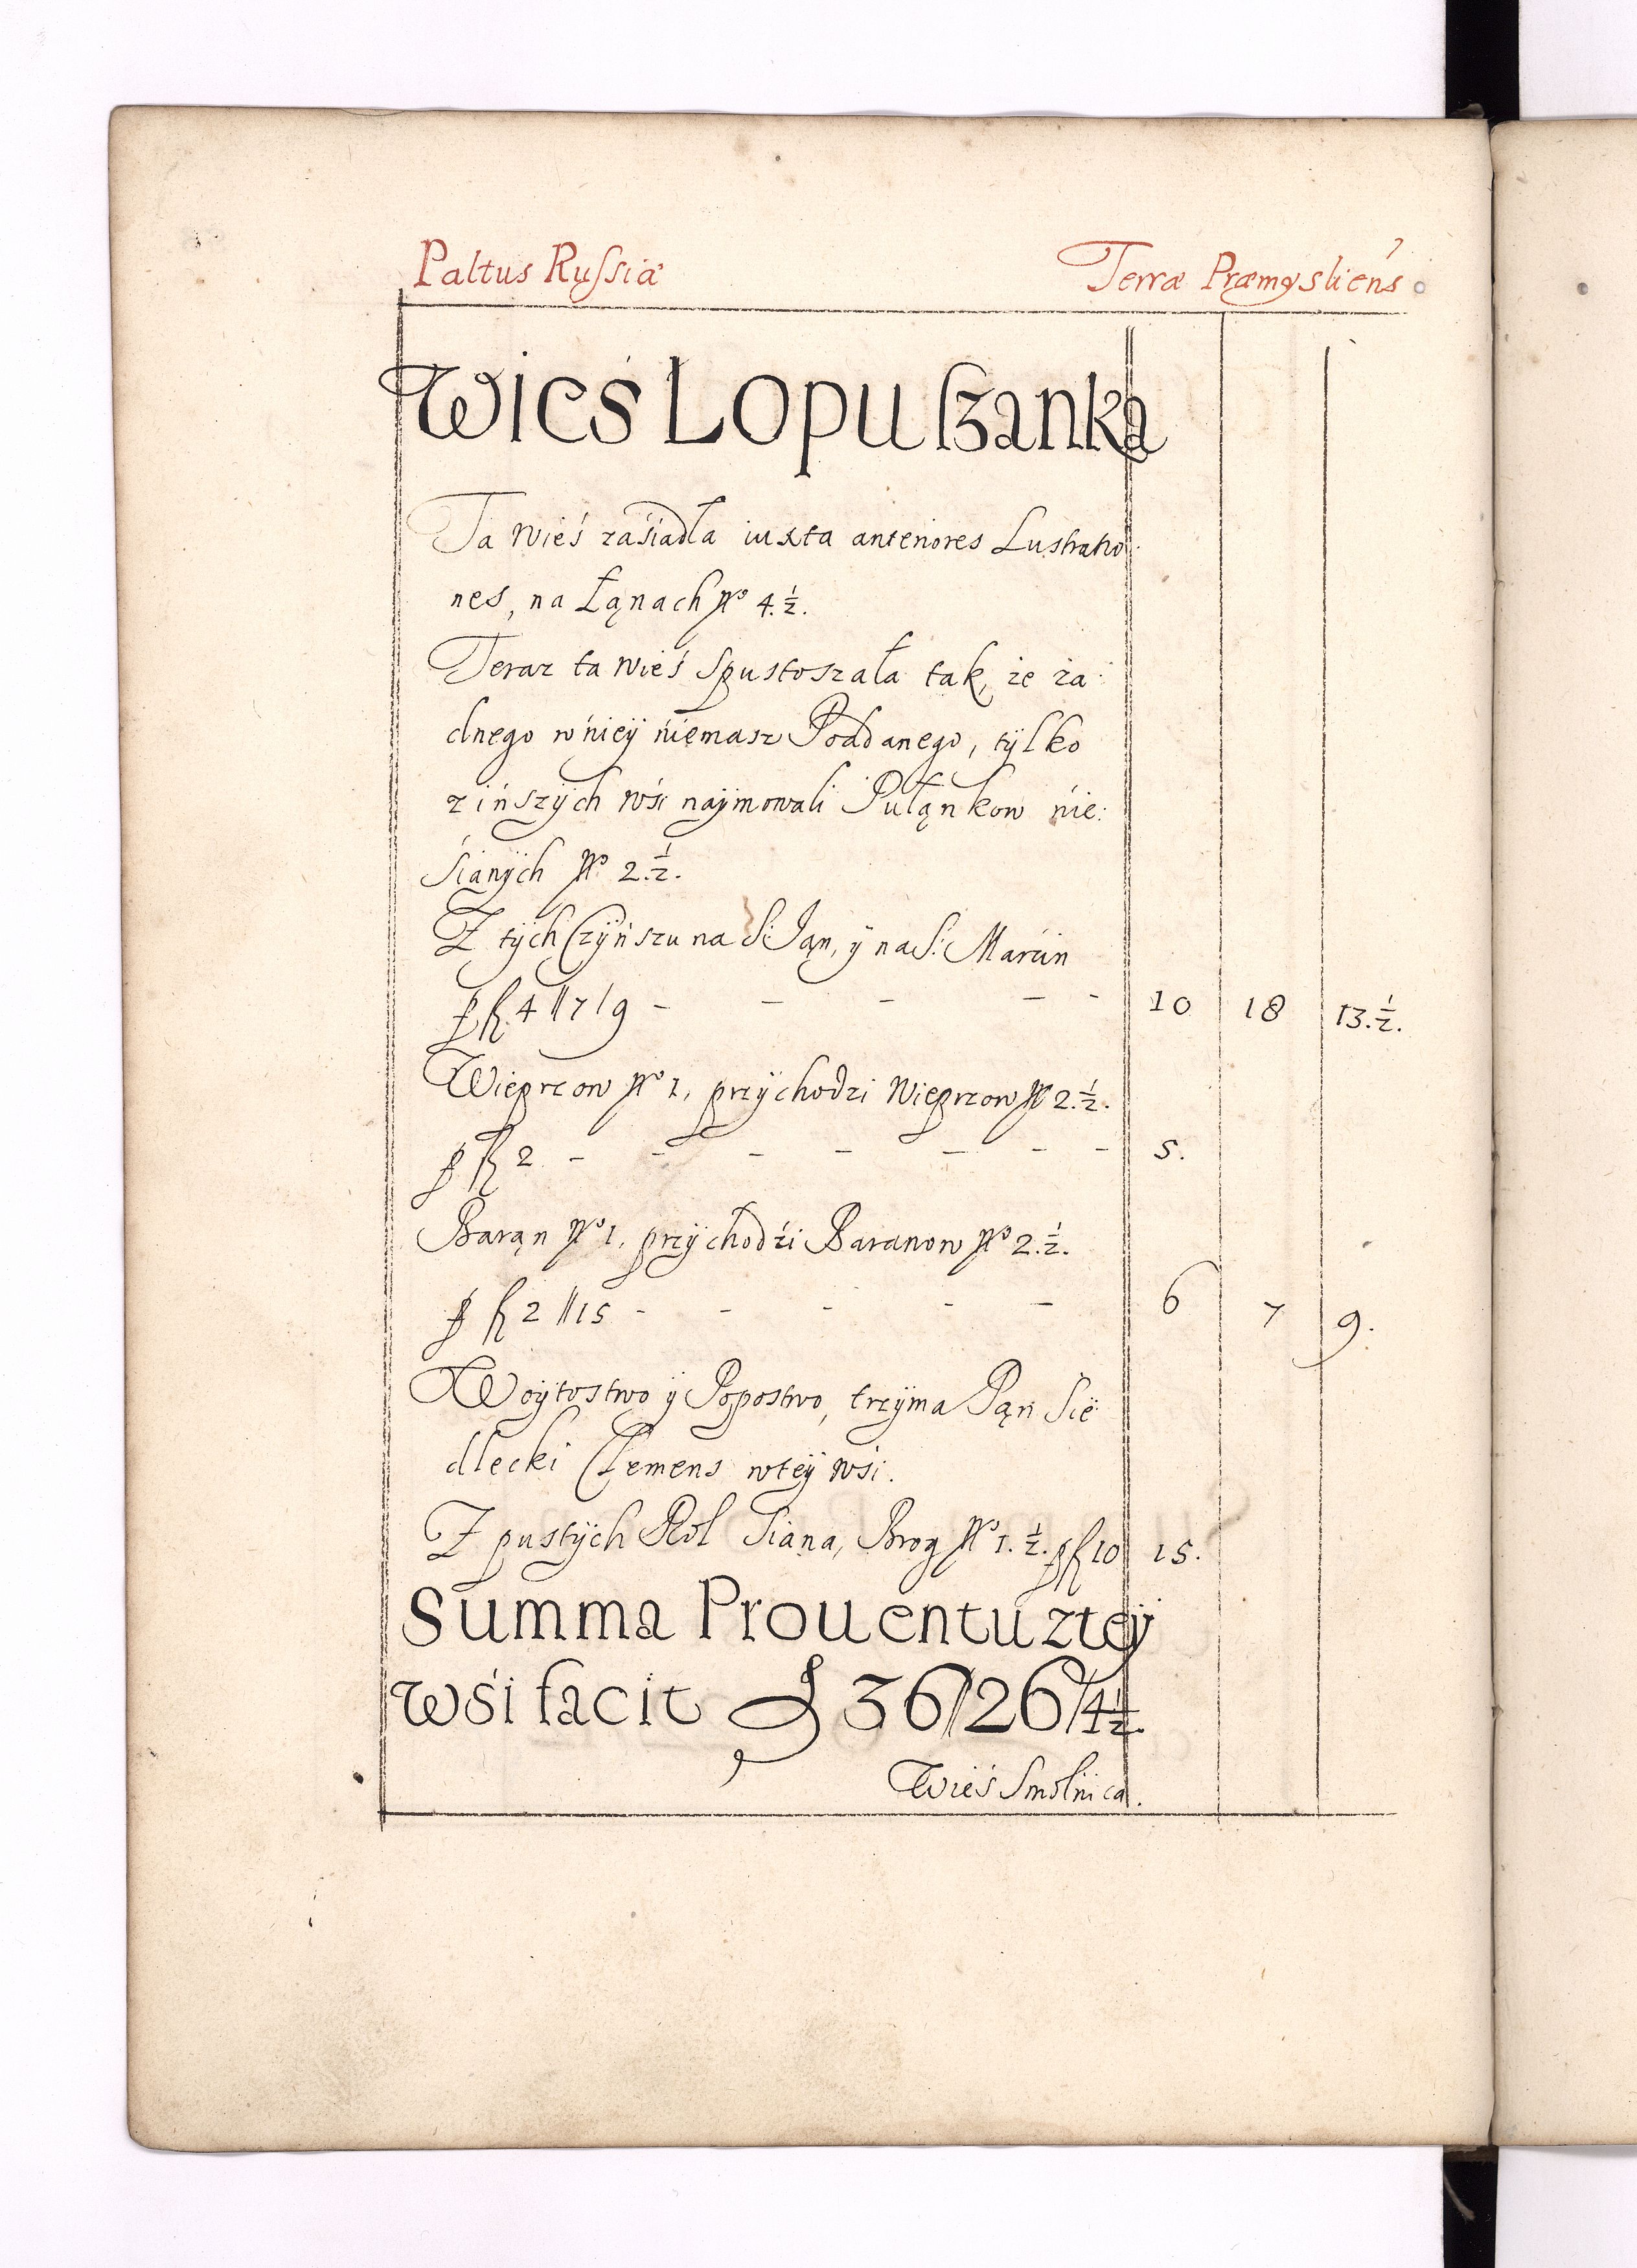 Paltus Russiæ Terræ Præmysliens
Wieś Lopuszanka
Ta wieś zaśiadła iuxta anteriores Lustratio
nes, na Łąnach No 4.½.
Teraz ta wieś spustoszała tak, że ża
dnego w niey niemasz Poddanego, tÿlko
z inszÿch wśi naÿmowali Pułąnkow nie:
śianÿch No 2.½.
Z tÿch Czÿńszu na S: Ian, ÿ na S: Marćin
p fl 4 // 7 / 9 - - - - - 10 18 13.½.
Wieprzow No 1, przÿchodzi Wieprzow No 2.½.
p fl 2 - - - - - - - 5.
Barąn No 1, przÿchodźi Baranow No 2.½.
p fl 2 // 15 - - - - - 6 7 9.
Woÿtostwo ÿ Popostwo, trzÿma Pąn Sie
dlecki Clemens wteÿ wśi.
Z pustÿch Rol Siana, Brog No 1.½. p fl 10 15.
Summa Prouentu zteÿ
wśi facit 36 // 26 / 4½.
Wieś Smolnica.